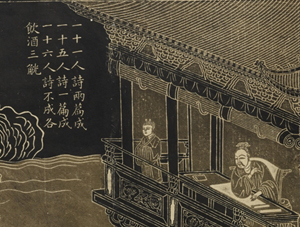 一十一人詩兩篇成
一十五人詩一篇成
一十六人詩不成各
飲酒三觥